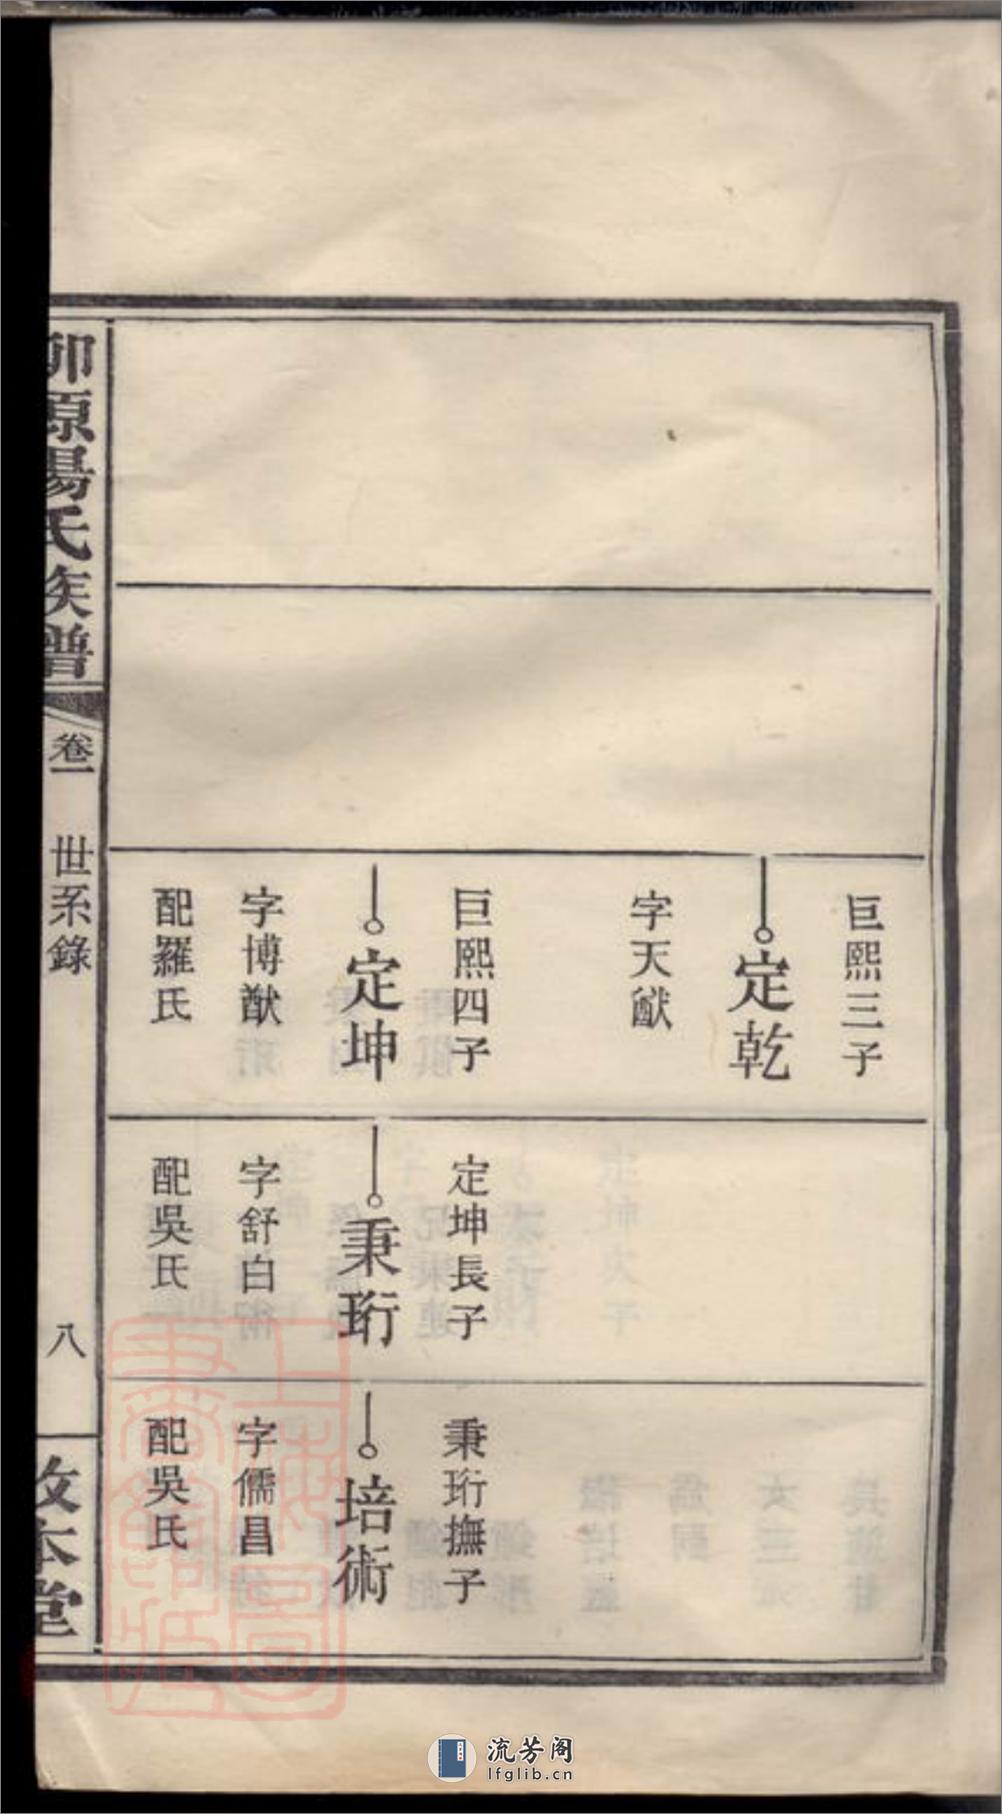 巨熙三子
定乾
字天猷
巨熙四子
定坤
字博猷
配羅氏
定坤長子
秉珩
字舒白
配吳氏
秉珩撫子
培術
字儒昌
配吳氏
原湯氏族譜
卷一
世系錄
八
本堂
流芳阁
lfglib.cn